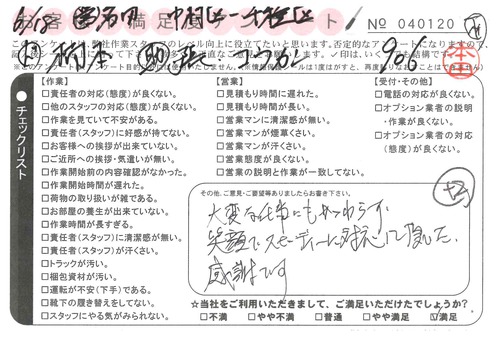 お客様満足度アンケート № 040120
6/18
906
チェックリスト
【作業】
□責任者の対応(態度)が良くない。
□他のスタッフの対応(態度)が良くない。
□作業を見ていて不安がある。
□責任者(スタッフ)に好感が持てない。
□お客様への挨拶が出来ていない。
□ご近所への挨拶・気遣いが無い。
□作業開始前の内容確認がなかった。
□作業開始時間が遅れた。
□荷物の取り扱いが雑である。
□お部屋の養生が出来ていない。
□作業時間が長すぎる。
□責任者(スタッフ)に清潔感が無い。
□責任者(スタッフ)が汗くさい。
□トラックが汚い。
□梱包資材が汚い。
□運転が不安(下手)である。
□靴下の履き替えをしてない。
□スタッフにやる気がみられない。
【営業】
□見積もり時間に遅れた。
□見積もり時間が長い。
□営業マンに清潔感が無い。
□営業マンが煙草くさい。
□営業マンが汗くさい。
□営業態度が良くない。
□営業の説明と作業が一致してない。
【受付・その他】
□電話の対応が良くない。
□オプション業者の説明
・作業が良くない。
□オプション業者の対応
(態度)が良くない。
その他、ご意見・ご要望等ありましたらお書き下さい。
大変な仕事にもかかわらず
笑顔でスピーディーに対応して頂いた、
感謝です
☆当社をご利用いただきまして、ご満足いただけたでしょうか?
□不満 □やや不満 □普通 □やや満足 ☑満足